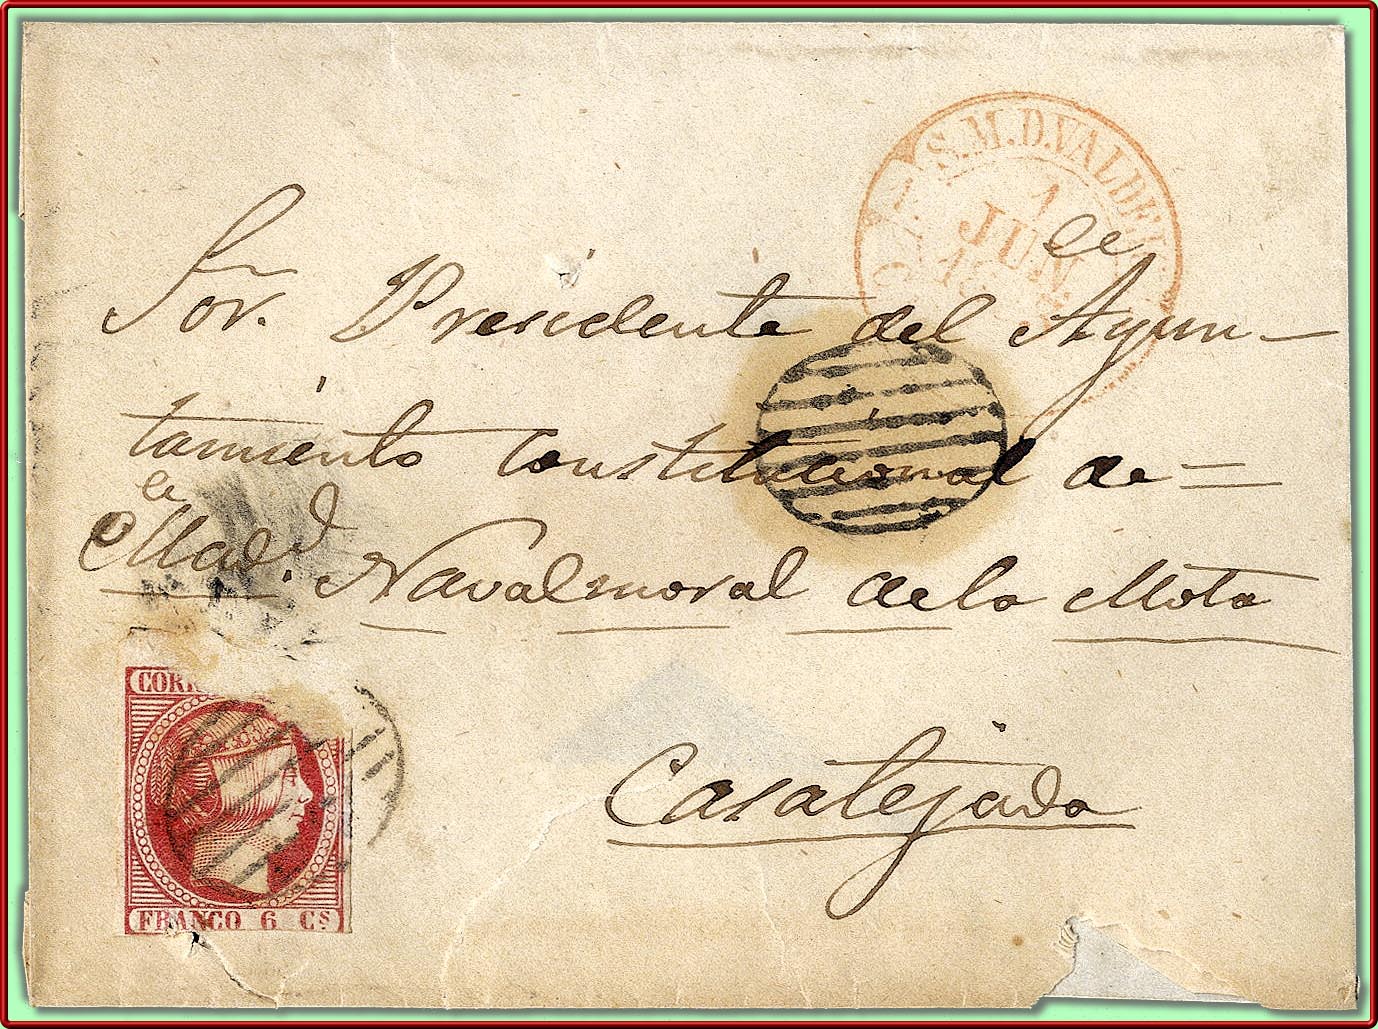 S.M.D.VALDE
1
JUN
Sor. Presidente del Ayun-
tamiento Constitucional de =
Navalmoral de la Mata
Casatejada
FRANCO 6 Cs